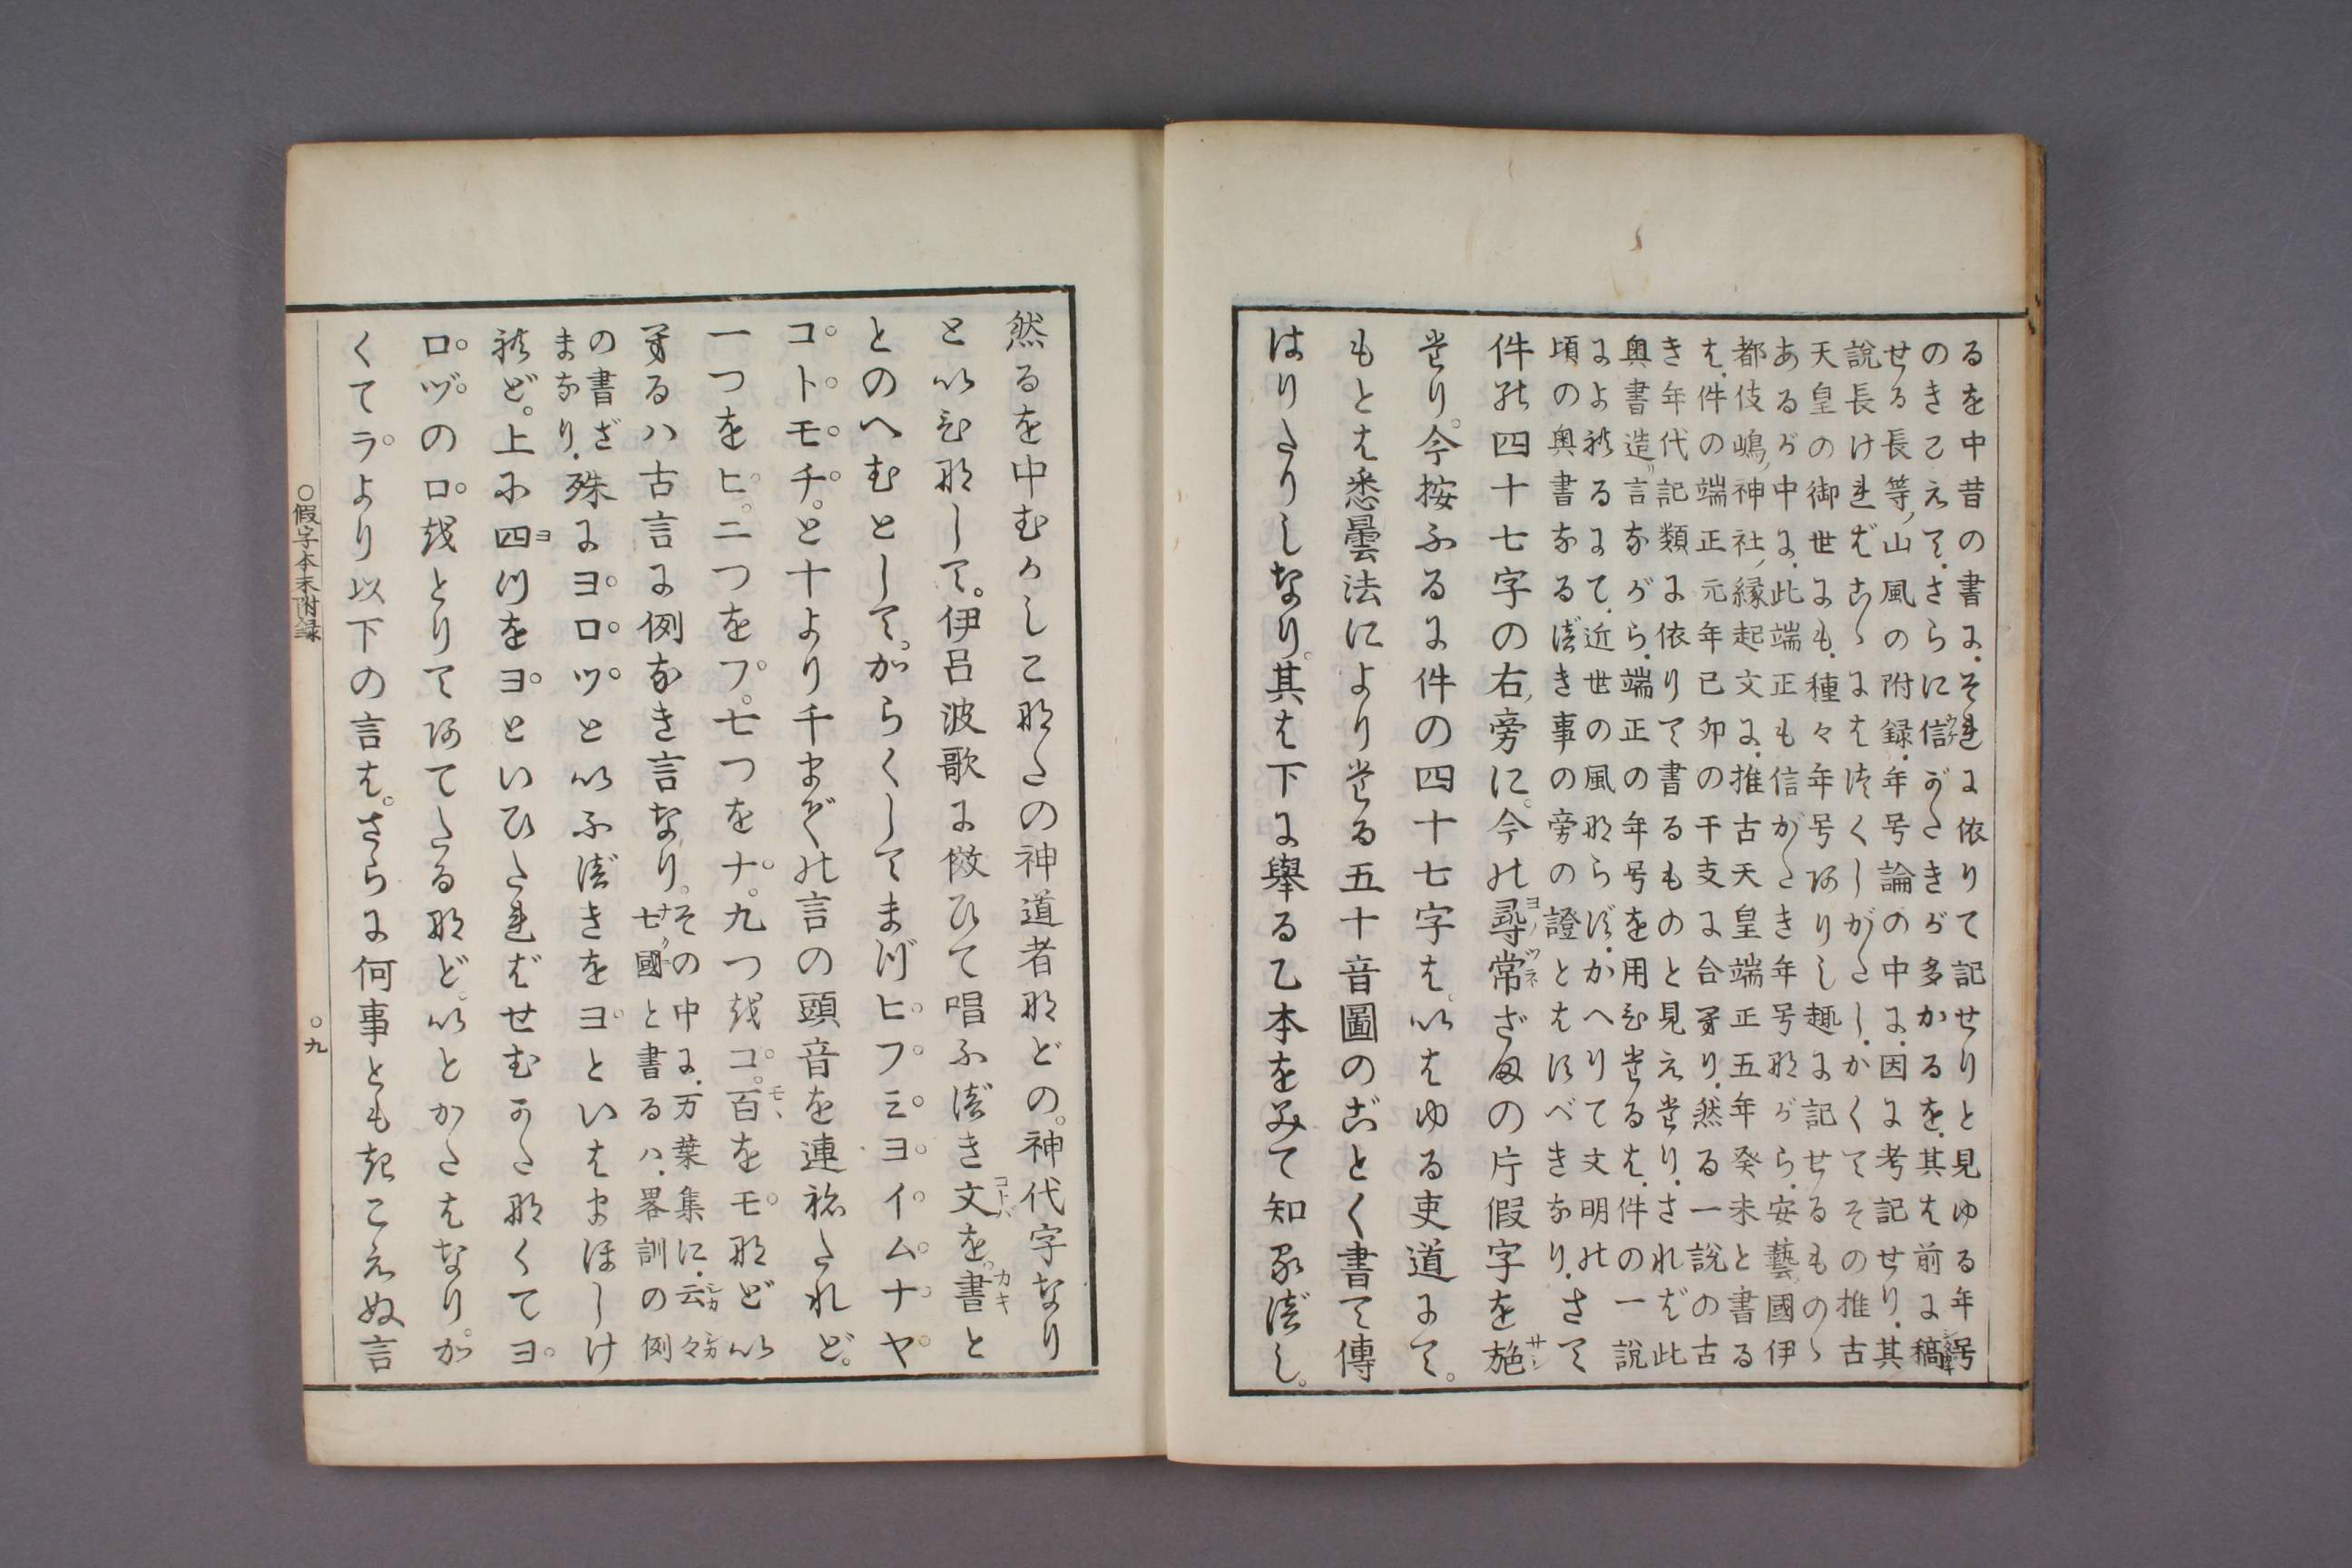 るを中昔の書に.それに依りて記せりと見ゆる年号
のきこえて.さらに信がたきが多かるを.其は前に稿
せる長等ノ山風の附録.年号論の中に.因に考記せり.其
説長ければこゝにはつくしがたし.かくてその推古
天皇の御世にも.種々年号ありし趣に記せるものゝ
あるが中に.此端正も信がたき年号ながら.安藝國伊
都伎嶋ノ神社ノ縁起文に.推古天皇端正五年癸未と書る
は.件の端正元年己卯の干支に合へり.然る一説の古
き年代記類に依りて書るものと見えたり.されば此
奥書造リ言ながら.端正の年号を用ひたるは.件の一説
によれるにて.近世の風ならず.かへりて文明の
頃の奥書なるべき事の旁の證とはすべきなり.さて
件の四十七字の右ノ旁に。今の尋常ざまの片假字を施
たり。今按ふるに件の四十七字は。いはゆる吏道にて。
もとは悉曇法により たる五十音圖のごとく書て傳
はりたりしなり。其は下に擧る乙本をみて知るべし。
然るを中むかしこなたの神道者などの。神代字なり
といひなして。伊呂波歌に傚ひて唱ふべき文を。書と
とのへむとして。からくしてまづヒフミヨイムナヤ
コトモチ。と十より千までの言の頭音を連ねたれど。
一つをヒ。二つをフ。七つをナ。九つをコ。百をモなどい
へるハ古言に例なき言なり。その中に.万葉集に.云々
七ノ國と書るハ.畧訓の例
の書ざ
まなり.殊にヨロツといふべきをヨといはまほしけ
れど。上に四つをヨといひたればせむかたなくてヨ
ロヅのロをとりてあてたるなど。いとかたはなり。か
くてラより以下の言は。さらに何事ともきこえぬ言
○假字本末附録
○九